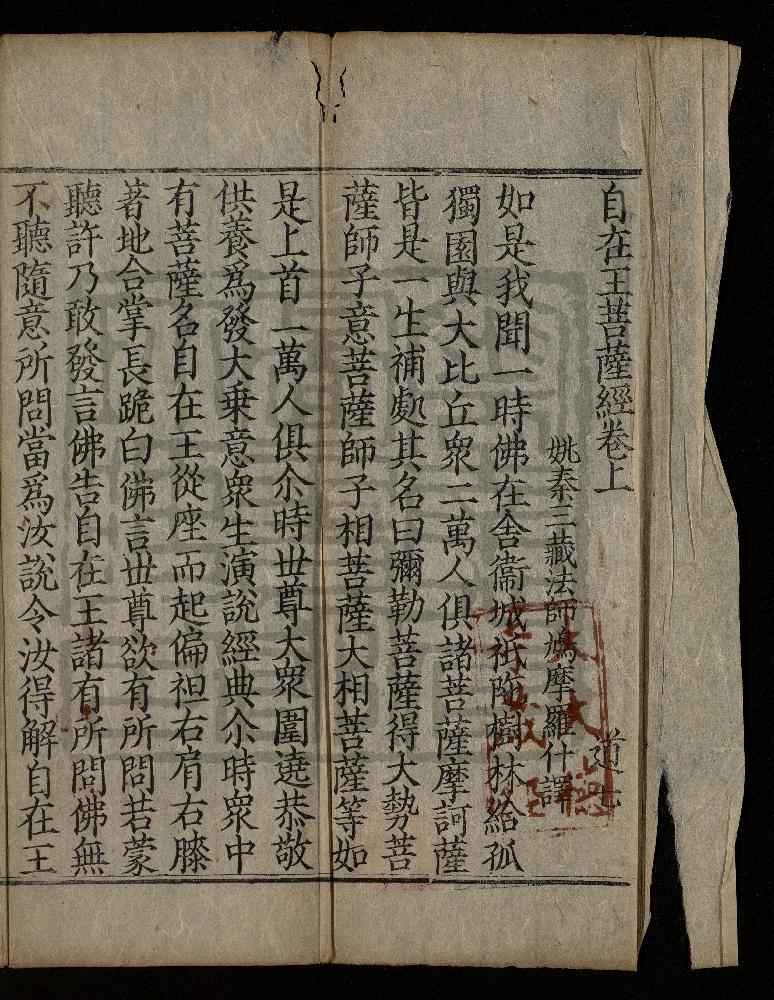 自在王菩薩經卷上
道七
姚秦三藏法師鳩摩羅什譯
如是我聞一時佛在舍衞城祇陁樹林給孤
獨園與大比丘衆二萬人俱諸菩薩摩訶薩
皆是一生補處其名曰彌勒菩薩得大勢菩
薩師子意菩薩師子相菩薩大相菩薩等如
是上首一萬人俱尒時世尊大衆圍遶恭敬
供養爲發大乗意衆生演說經典尒時衆中
有菩薩名自在王從座而起偏袒右肩右膝
著地合掌長跪白佛言世尊欲有所問若蒙
聽許乃敢發言佛告自在王諸有所問佛無
不聽隨意所問當爲汝說令汝得解自在王